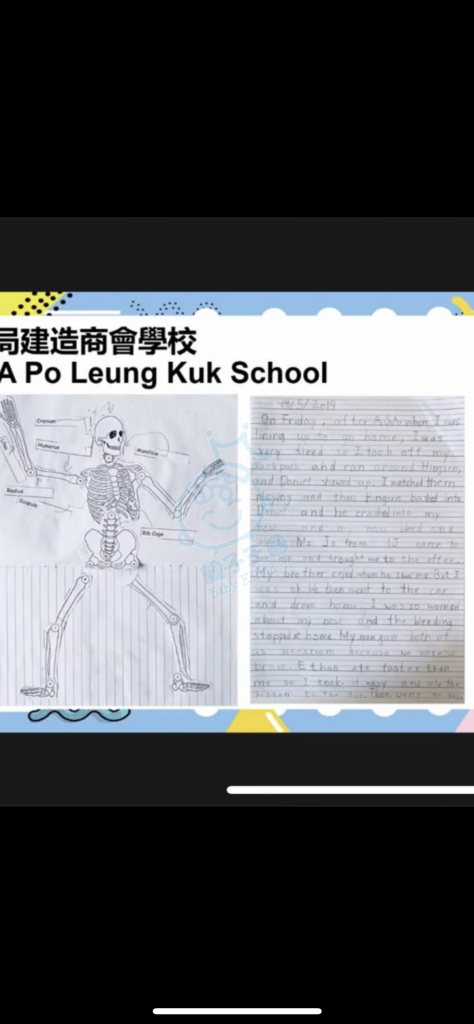 局建造商會學校
A Po Leung Kuk School
Cranium
Humerus
Mandible
Radius
Scapula
Rib Cage
親子王國
Baby Kingdom
14/5/2019
On Friday, after when I was
lining up to go home, I was
very tired so I took off my
backpack and ran around Hingsen,
and Daniel showed up. I watched them
playing and then Hingsen bashed into
Daniel and he crashed into my
and my nose bleed and
Ms Js from 1J came to
and brought me to the office.
My brother cried when he saw me. But I
was ok. We then went to the car
and drove home. I was so worried
about my nose and the bleeding
stopped at home. My mum gave both of
us icecream because we were so
brave. Ethan ate faster than
me so I took it easy and ate the
bottom to the top. Then went to